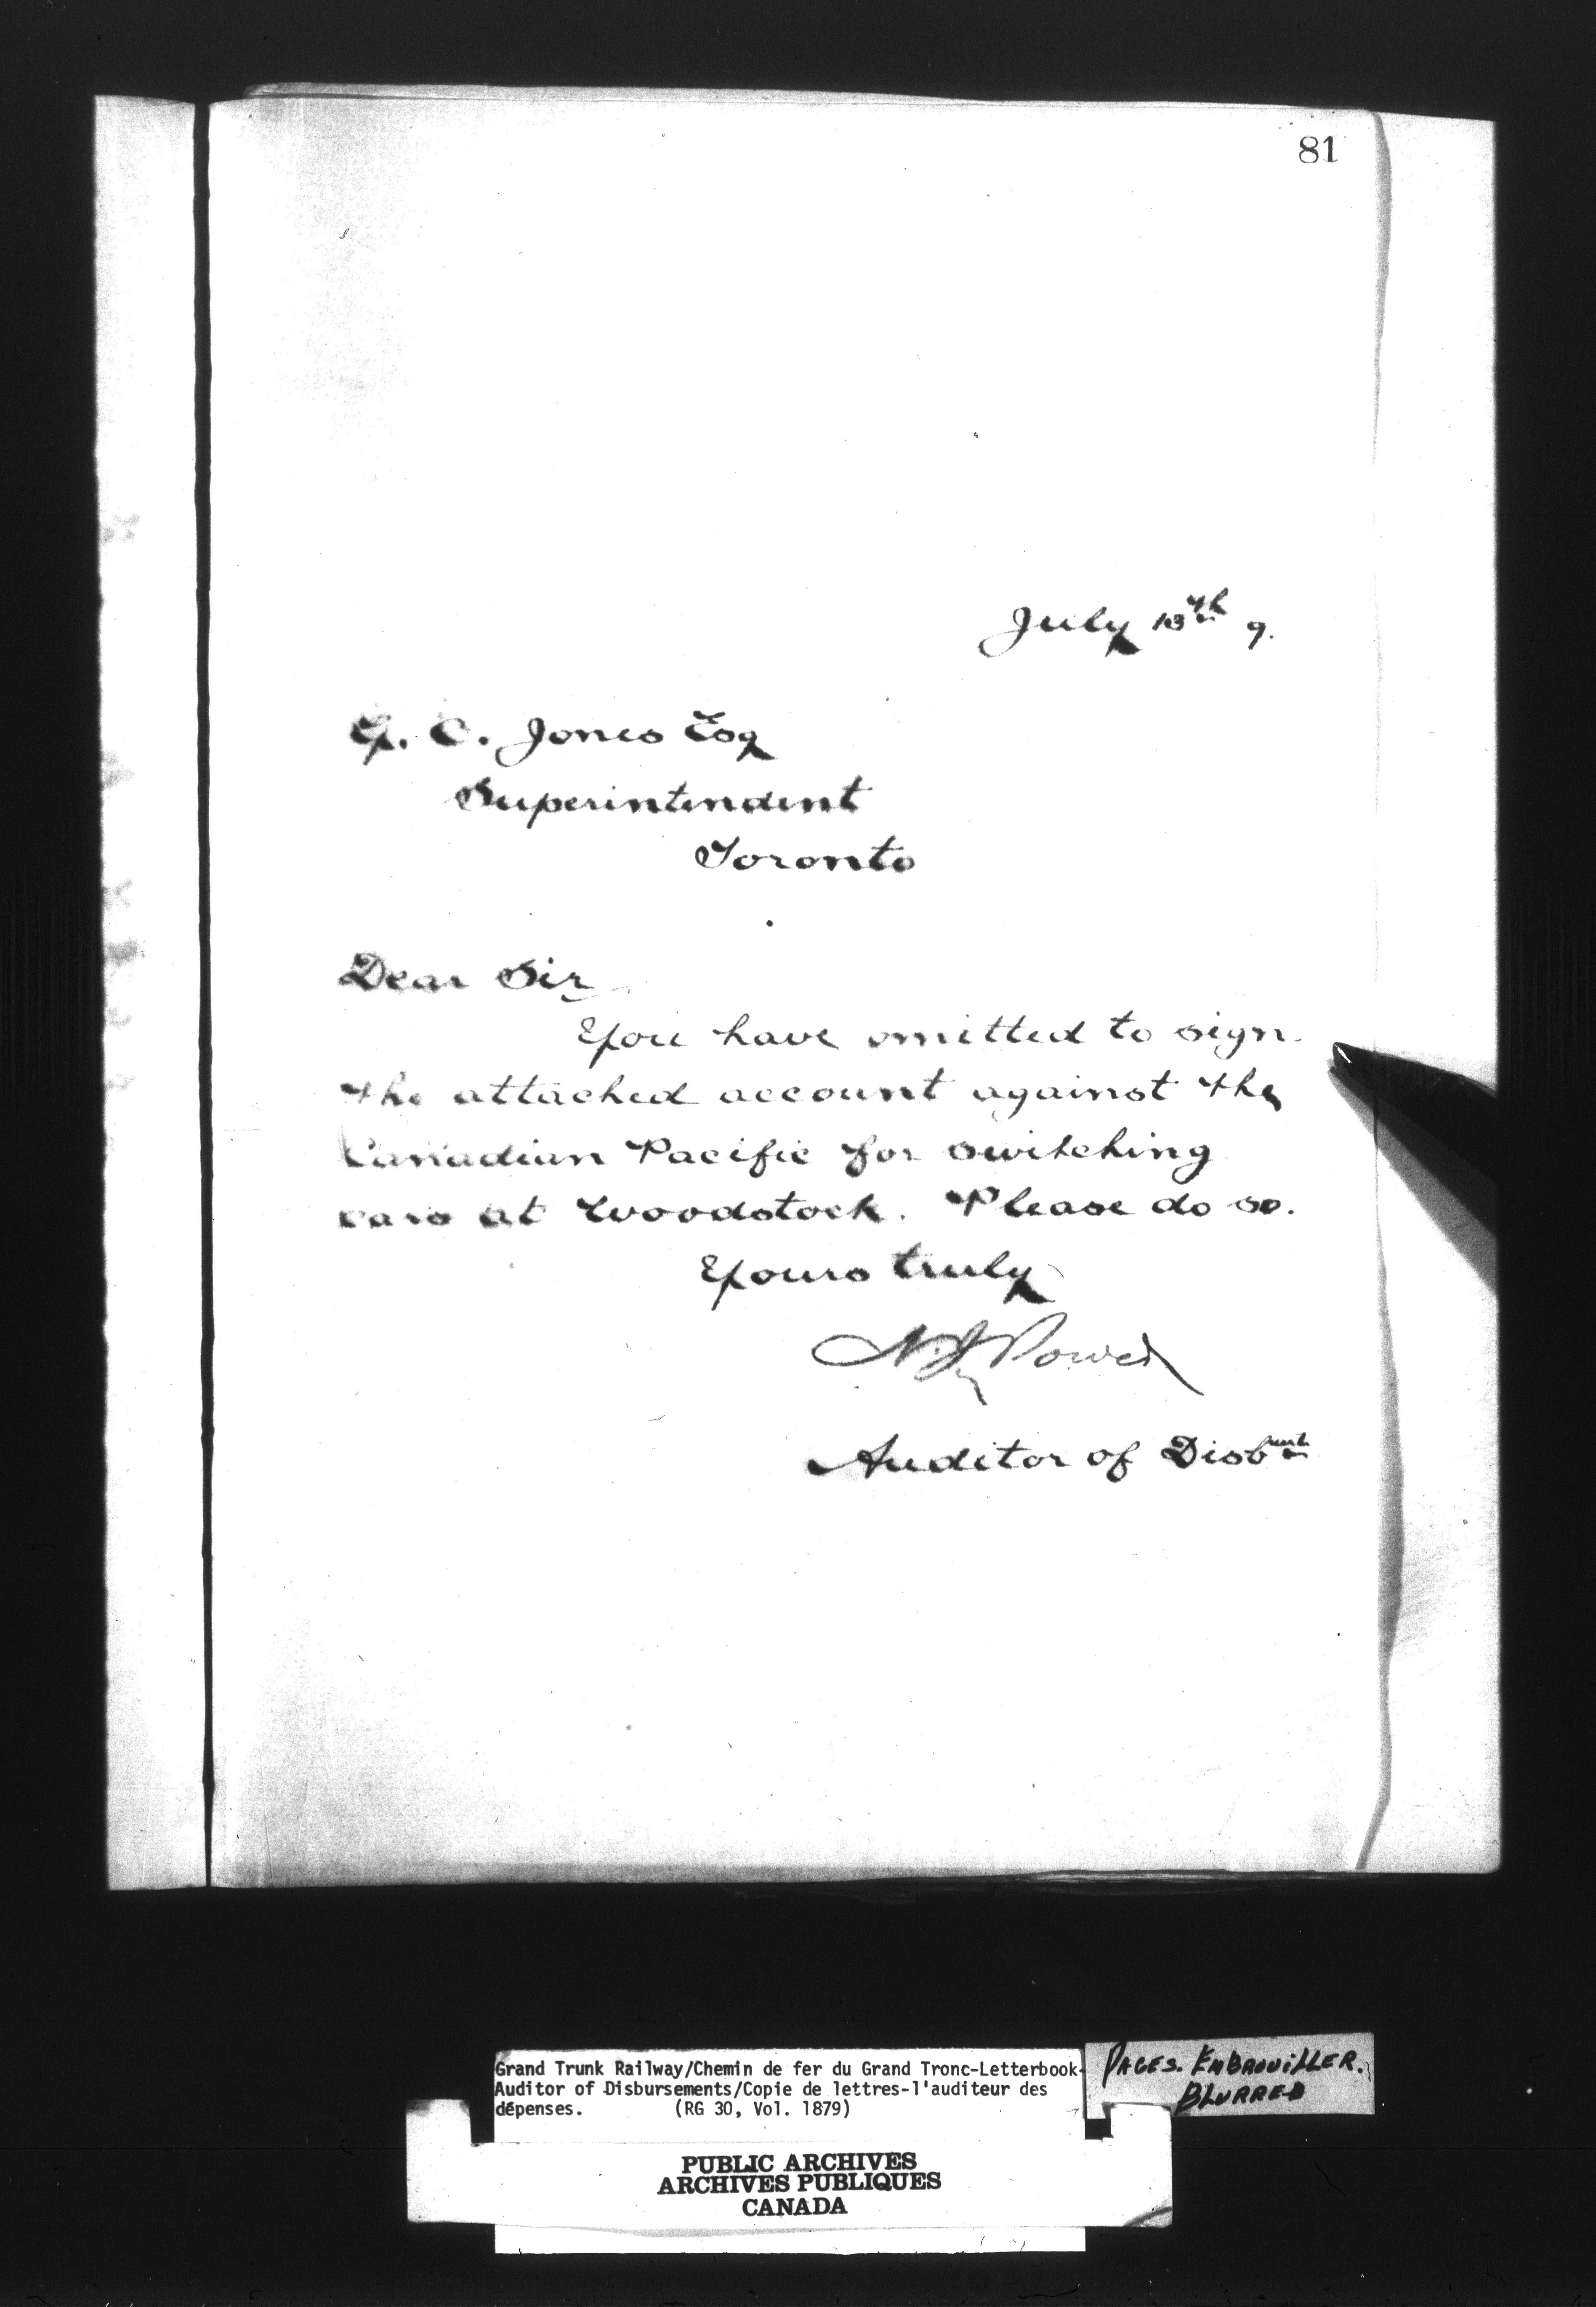 81
July 13th 9.
G. C. Jones Esq
Superintendent
Toronto
Dear Sir
You have omitted to sign
the attached account against the
Canadian Pacific for switching
cars at Woodstock. Please do so.
Yours truly
N. J. Power
Auditor of Disbmt
Grand Trunk Railway/Chemin de fer du Grand Tronc-Letterbook-
Auditor of Disbursements/Copie de lettres-l'auditeur des
dépenses. (RG 30, Vol. 1879)
PAGES. EMBROUILLER.
BLURRED
PUBLIC ARCHIVES
ARCHIVES PUBLIQUES
CANADA